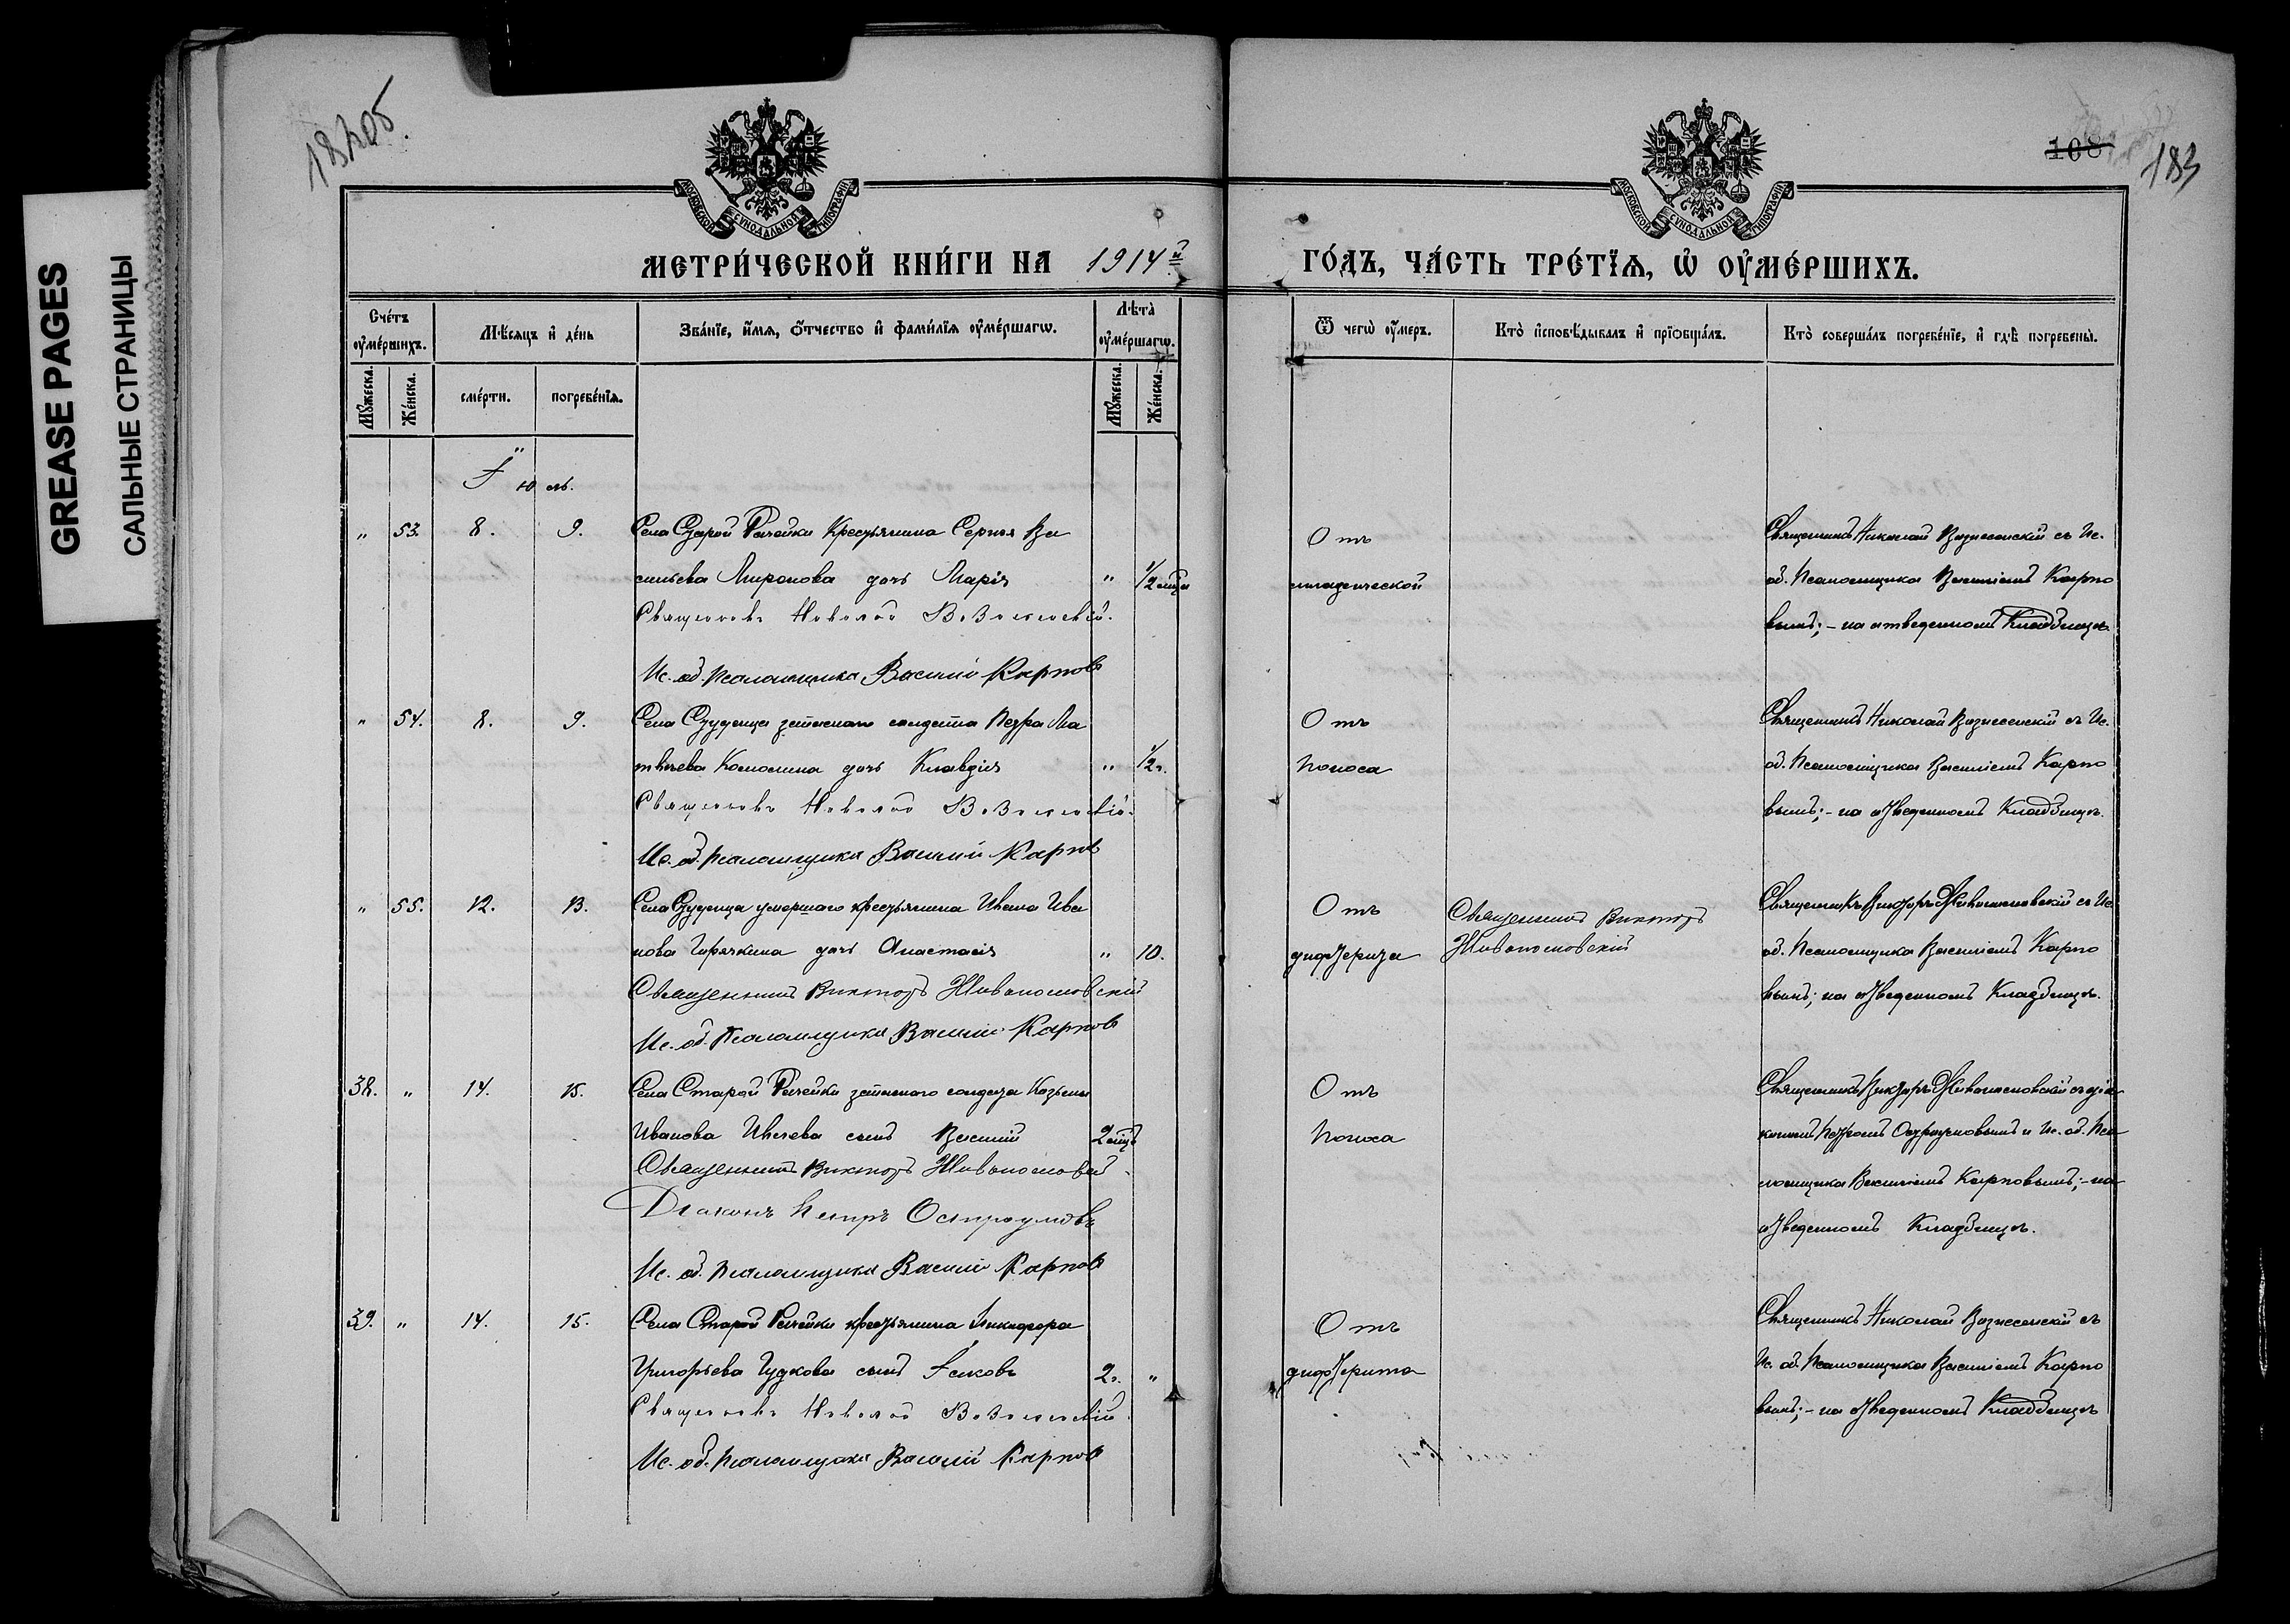 GREASE PAGES
САЛЬНЫЕ СТРАНИЦЫ
108
183
МОСКОВСКОЙ СУНОДАЛЬНОЙ ТИПОГРАФІИ
МОСКОВСКОЙ СУНОДАЛЬНОЙ ТИПОГРАФІИ
МЕТРИ́ЧЕСКОЙ КНИ́ГИ НА 1914й
ГО́ДЪ, ЧА́СТЬ ТРЕ́ТЇѦ, Ѡ҆ ОУ҆МЕ́РШИХЪ.
Сче́тъ оу҆ме́ршихъ.
Мѣ́сяцъ и҆ де́нь
Зва́нїе, и҆́мѧ, ѻ҆́тчество и҆ фами́лїѧ оу҆ме́ршагѡ.
Лѣ́та оу҆ме́ршагѡ.
Ѿ чегѡ̀ оу҆́меръ.
Кто̀ и҆сповѣ́дывалъ и҆ прїѡбща́лъ.
Кто̀ соверша́лъ погребе́нїе, и҆ гдѣ̀ погребены̀.
Мꙋ́жеска.
Же́нска.
сме́рти.
погребе́нїѧ.
Мꙋ́жеска.
Же́нска.
Іюль.
" 53. 8. 9. Села Старой Рачейки крестьянина Сергѣя Ва
сильева Миронова дочь Марія " 1/2 мѣсца
Священникъ Николай Вознесенскій.
Ис. об. псаломщика Василій Карповъ
Отъ
младенческой
Священникъ Николай Вознесенскій съ Ис.
об. Псаломщика Василіемъ Карпо
вымъ; - на отведенномъ Кладбищѣ
" 54. 8. 9. Села Студенца запаснаго солдата Петра Ма
твѣева дочь Клавдія " 1/2 г.
Священникъ Николай Вознесенскій.
Ис. об. псаломщика Василій Карповъ
Отъ
поноса
Священникъ Николай Вознесенскій съ Ис.
об. Псаломщика Василіемъ Карпо
вымъ; - на отведенномъ Кладбищѣ.
" 55. 12. 13. Села Студенца умершаго крестьянина Ивана Ива
нова Горячкина дочь Анастасія " 10.
Священникъ Викторъ Живоносновскій
Ис. об. Псаломщика Василій Карповъ
Отъ
дифтерита
Священникъ Викторъ
Живоносновскій
Священникъ Викторъ Живоносновскій съ Ис.
об. Псаломщика Василіемъ Карпо
вымъ; на отведенномъ Кладбищѣ.
38. " 14. 15. Села Старой Рачейки запаснаго солдата Козьмы
Иванова сынъ Василій 2 мѣсц
Священникъ Викторъ Живоносновскій
Діаконъ Петръ Остроумовъ
Ис. об. псаломщика Василій Карповъ
Отъ
поноса
Священникъ Викторъ Живоносновскій съ діа
кономъ Петромъ Остроумовымъ и Ис. об. Пса
ломщика Василіемъ Карповымъ; - на
отведенномъ Кладбищѣ.
39. " 14. 15. Села Старой Рачейки крестьянина Никифора
Григорьева Гудкова сынъ Іаковъ 2 г. "
Священникъ Николай Вознесенскій.
Ис. об. псаломщика Василій Карповъ
Отъ
дифтерита
Священникъ Николай Вознесенскій съ
Ис. об. Псаломщика Василіемъ Карпо
вымъ; - на отведенномъ Кладбищѣ